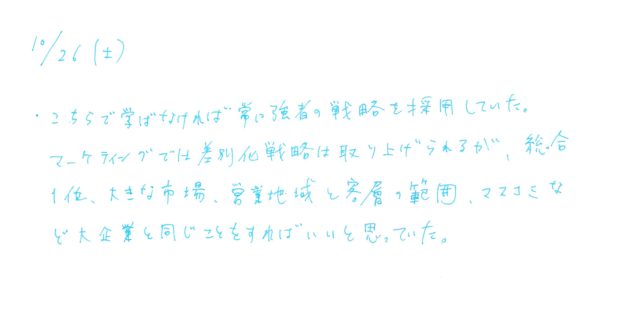 10/26(土)
・こちらで学ばなければ常に強者の戦略を採用していた。
マーケティングでは差別化戦略は取り上げられるが、総合
1位、大きな市場、営業地域と客層の範囲、マスコミな
ど大企業と同じことをすればいいと思っていた。